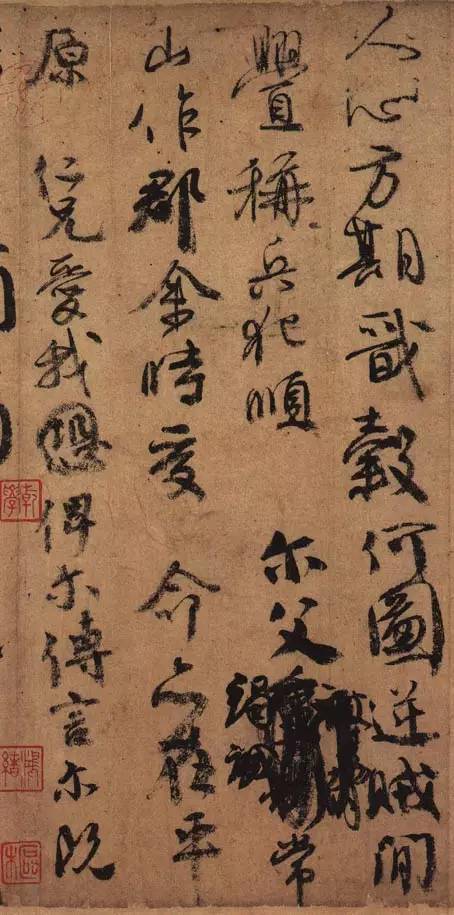 人心方期戩穀何圖逆賊閒
舋稱兵犯順　尒父竭誠常
山作郡余時受　命亦在平
原　仁兄愛我恐俾尒傳言尒既